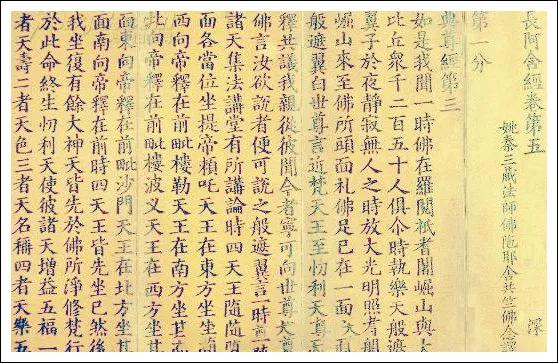 長阿含經卷第五 深
姚秦三藏法師佛陁耶舍共竺佛念譯
第一分
典尊經第三
如是我聞一時佛在羅閱祇耆闍崛山與大
比丘衆千二百五十人俱尒時執樂天般遮
翼子於夜靜寂無人之時放大光明照耆闍
崛山來至佛所頭面礼佛足已在一面
般遮翼白世尊言近梵天王至忉利天
釋共議我親從彼聞今者寧可向世尊
佛言汝欲說者便可說之般遮翼言一時
諸天集法講堂有所講論時四天王隨
面各當位坐提帝頼吒天王在東方坐其
西向帝釋在前毗樓勒天王在南方坐其
北向帝釋在前毗樓波叉天王在西方坐其
面東向帝釋在前毗沙門天王在北方坐其
面南向帝釋在前時四天王皆先坐已然後
我坐復有餘大神天皆先於佛所淨修梵行
於此命終生忉利天使彼諸天增益五福一
者天壽二者天色三者天名稱四者天樂五